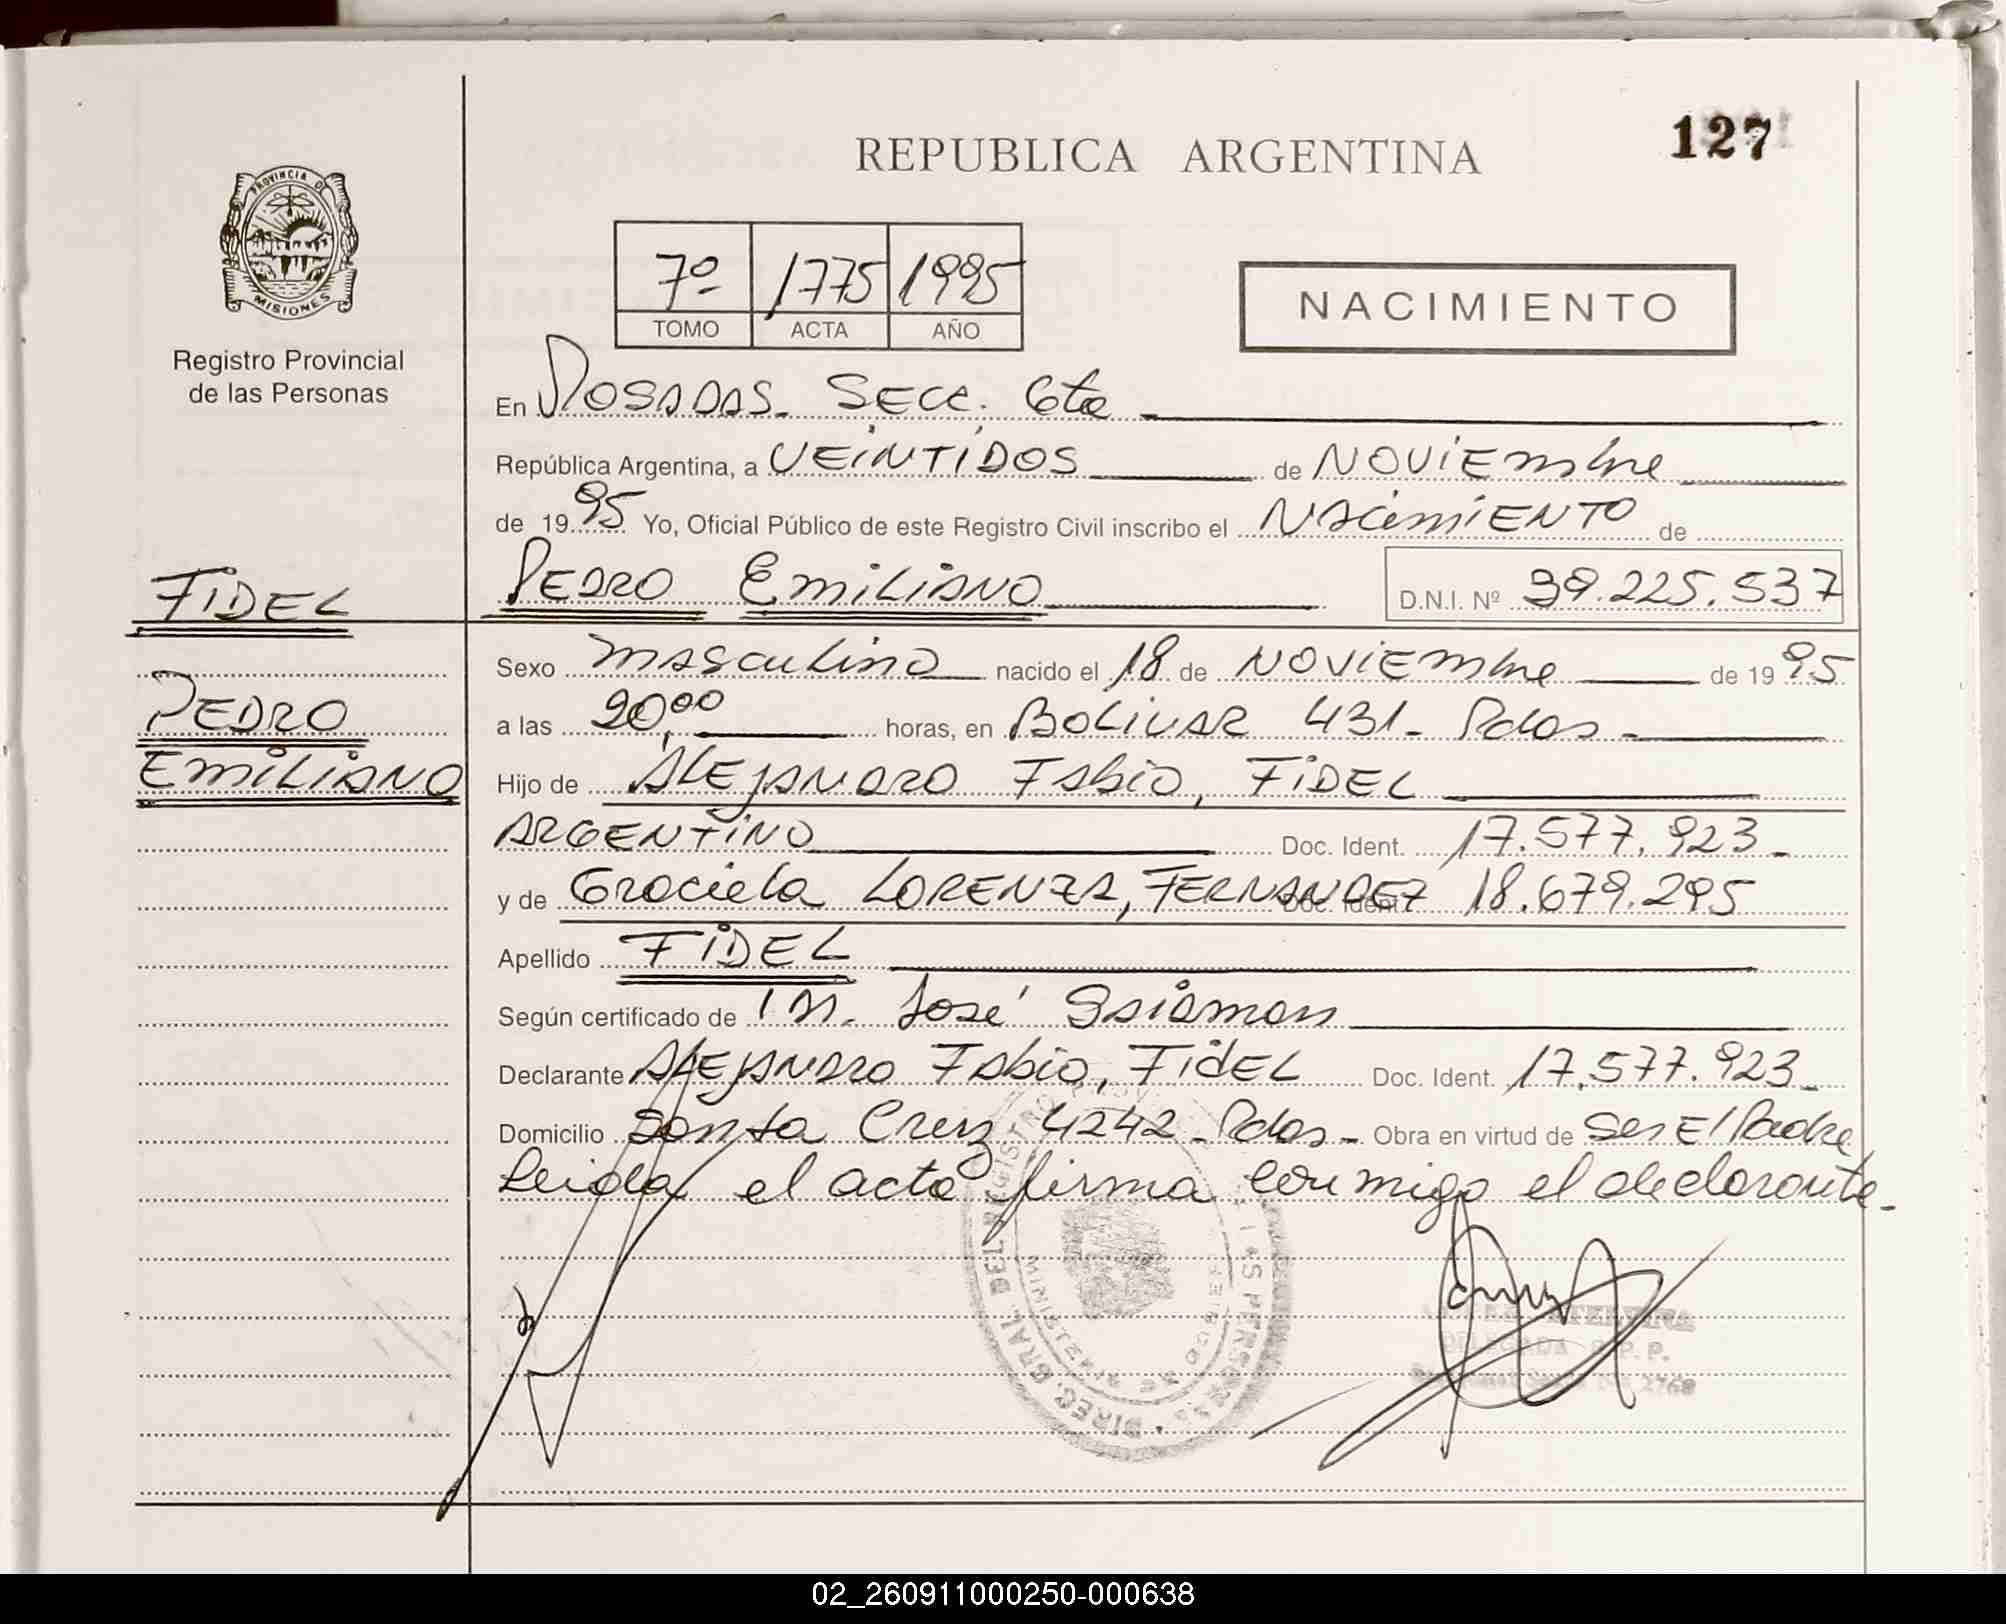 127
REPUBLICA ARGENTINA
PROVINCIA D
MISIONES
Registro Provincial
de las Personas
7º 1775 1995
TOMO ACTA AÑO
NACIMIENTO
En POSADAS. SECC. 6ta
República Argentina, a VEINTIDOS de NOVIEmbre
de 1995 Yo, Oficial Público de este Registro Civil inscribo el NACIMIENTO de
FIDEL
PEDRO EMILIANO D.N.I. Nº 39.225.537
PEDRO
EMILIANO
Sexo MASCULINO nacido el 18 de NOVIEmbre de 1995
a las 20,00 horas, en BOLIVAR 431- Pdas-
Hijo de ALEJANDRO FABIO, FIDEL
ARGENTINO Doc. Ident. 17.577.923-
y de Graciela LORENZA, FERNANDEZ Doc. Ident. 18.679.295
Apellido FIDEL
Según certificado de José
Declarante ALEJANDRO FABIO, FIDEL Doc. Ident. 17.577.923-
Domicilio Santa Cruz 4242- Pdas- Obra en virtud de ser El Padre
Leida el acta firma conmigo el declarante.-
DIREC. GRAL. DEL REGISTRO
LAS PERSONAS
DELEGADA
02_260911000250-000638